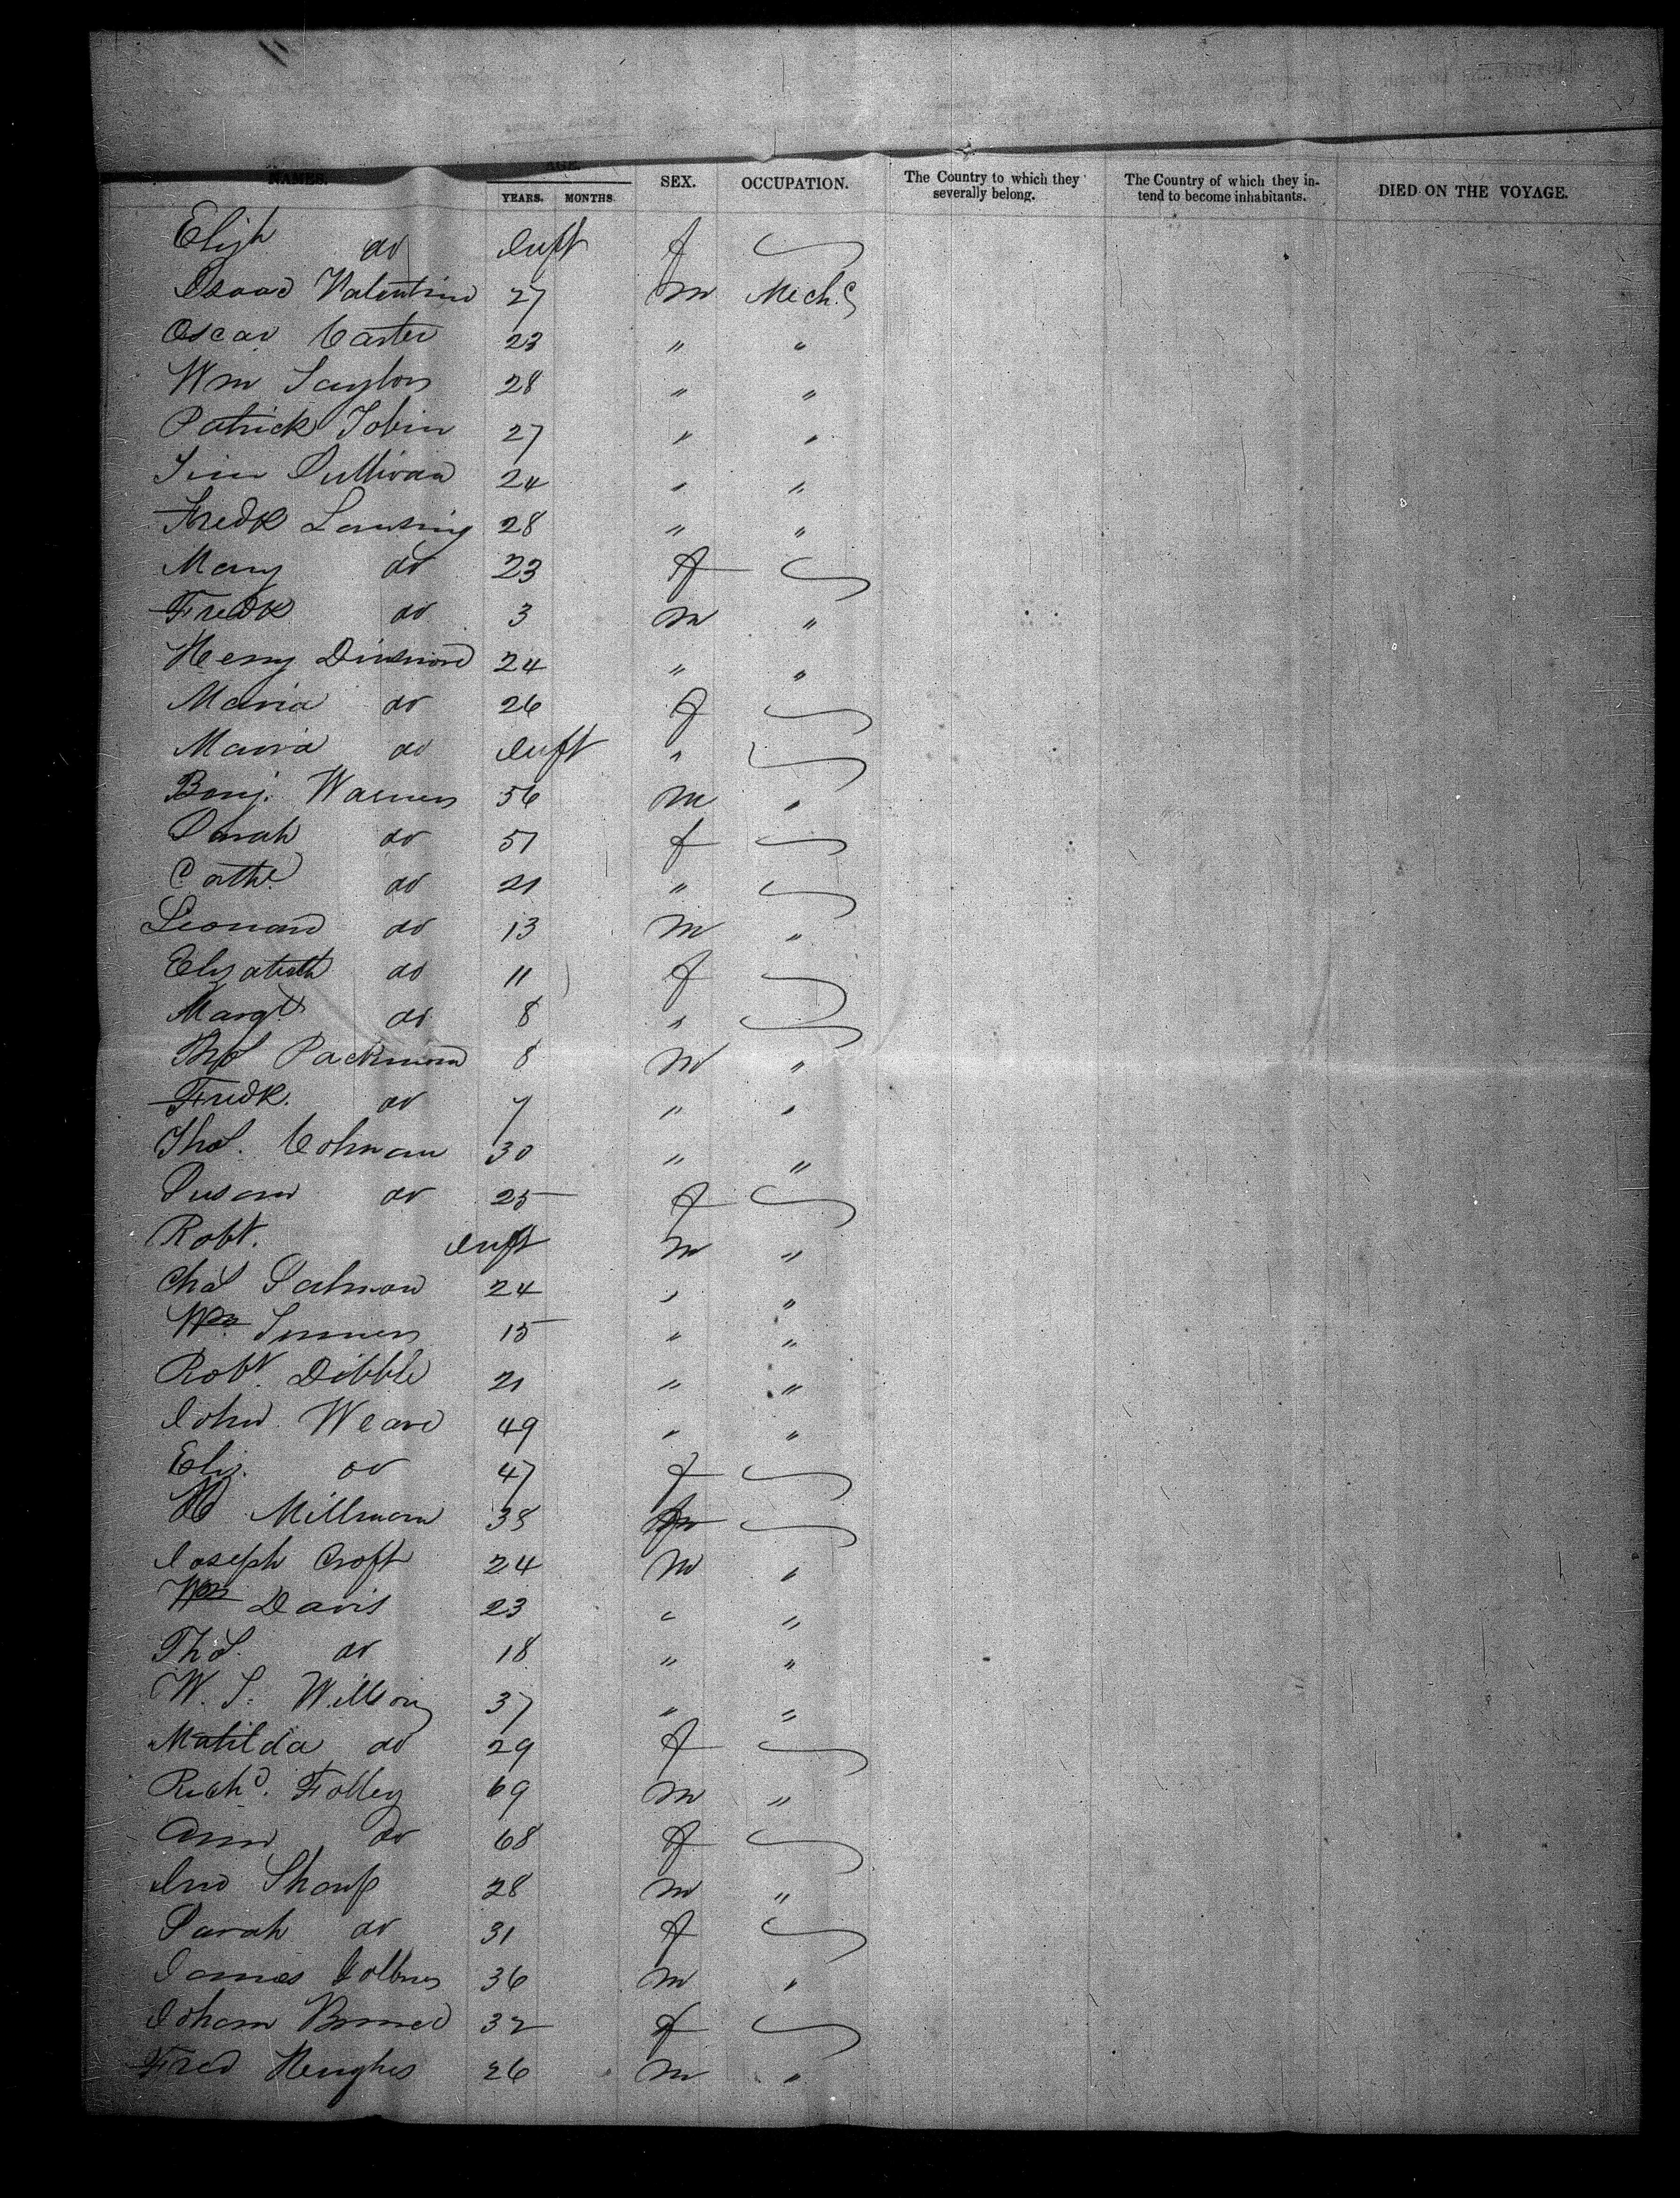 NAMES. AGE. YEARS. MONTHS. SEX. OCCUPATION. The Country to which they severally belong. The Country of which they intend to become inhabitants. DIED ON THE VOYAGE.
Elizh do Inft f
Isaac Valentine 27 m Mech.c
Oscar Carter 23 " "
Wm Taylor 28 " "
Patrick Tobin 27 " "
Tim Sullivan 24 " "
Fredk Lansing 28 " "
Mary do 23 f
Fredk do 3 m "
Henry Dinsmore 24 " "
Maria do 26 f
Maria do Inft "
Benj. Warner 56 m "
Sarah do 51 f
Cathe. do 21 "
Leonard do 13 m "
Elizabeth do 11 f
Margt do 8 "
Thos Packman 8 m "
Fredk. do 7 " "
Thos. Colman 30 " "
Susan do 25 f
Robt. Inft m "
Chas Salmon 24 " "
Wm 15 " "
Robt. Dibble 21 " "
John Weare 49 " "
Eliz. do 47 f
Millman 38
Joseph Croft 24 m "
Wm Davis 23 " "
Thos. do 18 " "
W. S. Willson 37 " "
Matilda do 29 f
Richd. Folley 69 m "
Ann do 68 f
Jno Sharp 28 m "
Sarah do 31 f
James 36 m "
32 f
Fred Hughes 26 m "